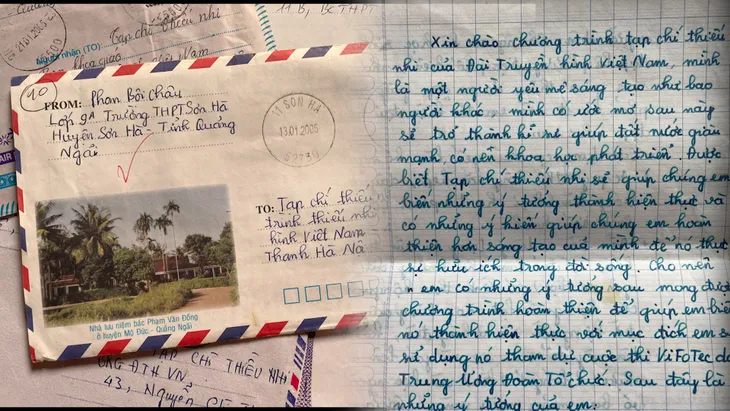 11B, BCTHPT
21.01.2005
Người nhận (TO): Tạp chí thiếu nhi
khoa giáo
Nam
10
FROM: Phan Bội Châu
Lớp 9A Trường THPT Sơn Hà
Huyện Sơn Hà - Tỉnh Quảng
Ngãi
11 SƠN HÀ
13.01.2005
TO: Tạp chí thiếu
trình thiếu nhi
hình Việt Nam
Thanh Hà Nà
Nhà lưu niệm bác Phạm Văn Đồng
ở huyện Mộ Đức - Quảng Ngãi
TẠP CHÍ THIẾU NHI
ĐTH VN
43, Nguyễn
Xin chào chương trình tạp chí thiếu
nhi của Đài Truyền hình Việt Nam, mình
là một người yêu mê sáng tạo như bao
người khác, mình có ước mơ sau này
sẽ trở thành kĩ sư giúp đất nước giàu
mạnh, có nền khoa học phát triển. Được
biết Tạp chí thiếu nhi sẽ giúp chúng em
biến những ý tưởng thành hiện thực và
có những ý kiến giúp chúng em hoàn
thiện hơn sáng tạo của mình để nó thực
sự hữu ích trong đời sống. Cho nên
em có những ý tưởng sau mong được
chương trình hoàn thiện để giúp em biến
nó thành hiện thực với mục đích em sẽ
sử dụng nó tham dự cuộc thi ViFoTec do
Trung Ương Đoàn Tổ chức. Sau đây là
những ý tưởng của em: